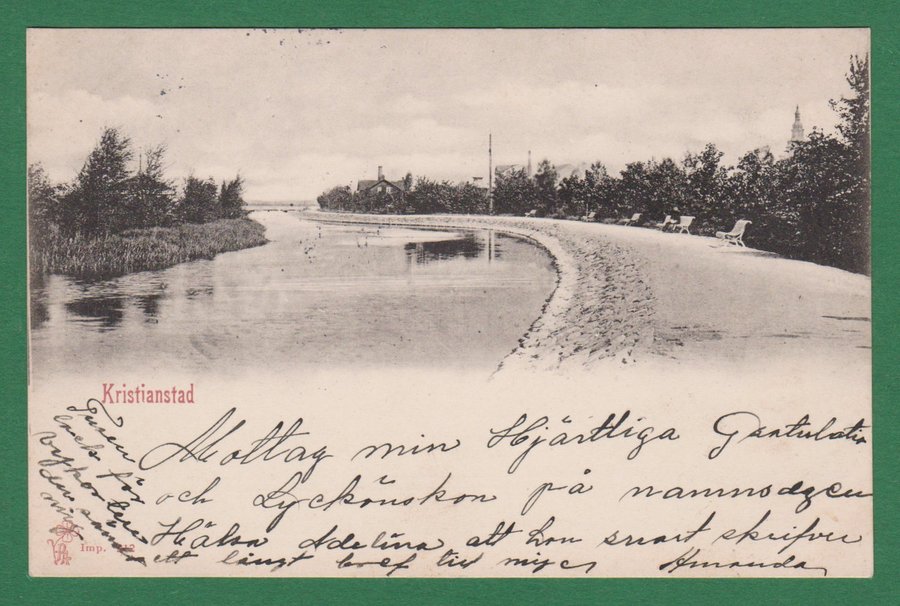 Kristianstad
Mottag min Hjärtliga Gratulation
och Lyckönskon på namnsdagen
Hälsa Adelina att hon snart skrifver
ett långt bref till mig Amanda
Tusen
för
du
mig
Imp.